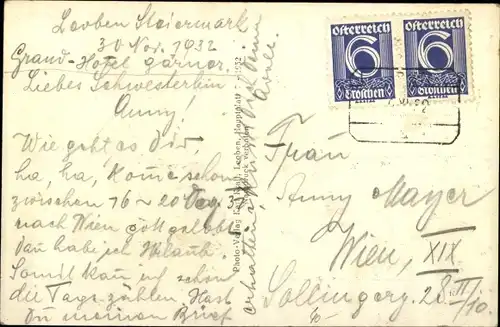 Leoben Steiermark
30 Nov. 1932
Grand-Hotel gärner.
Liebes Schwesterlein
Anny!
Wie geht es Dir,
ha, ha, Kome schon
zwischen 16 - 20 Dez.
nach Wien gottgelobt
Dan hab ich Urlaub.
Somit kan
schon
die Tage zählen, Hast
Du meinen Brief
erhalten,
Photo-Verlag
Leoben, Hauptplatz
verboten
Österreich
6
Groschen
Österreich
6
Groschen
Frau
Anny Mayer
Wien, XIX
Sollingerg. 28
II/10.